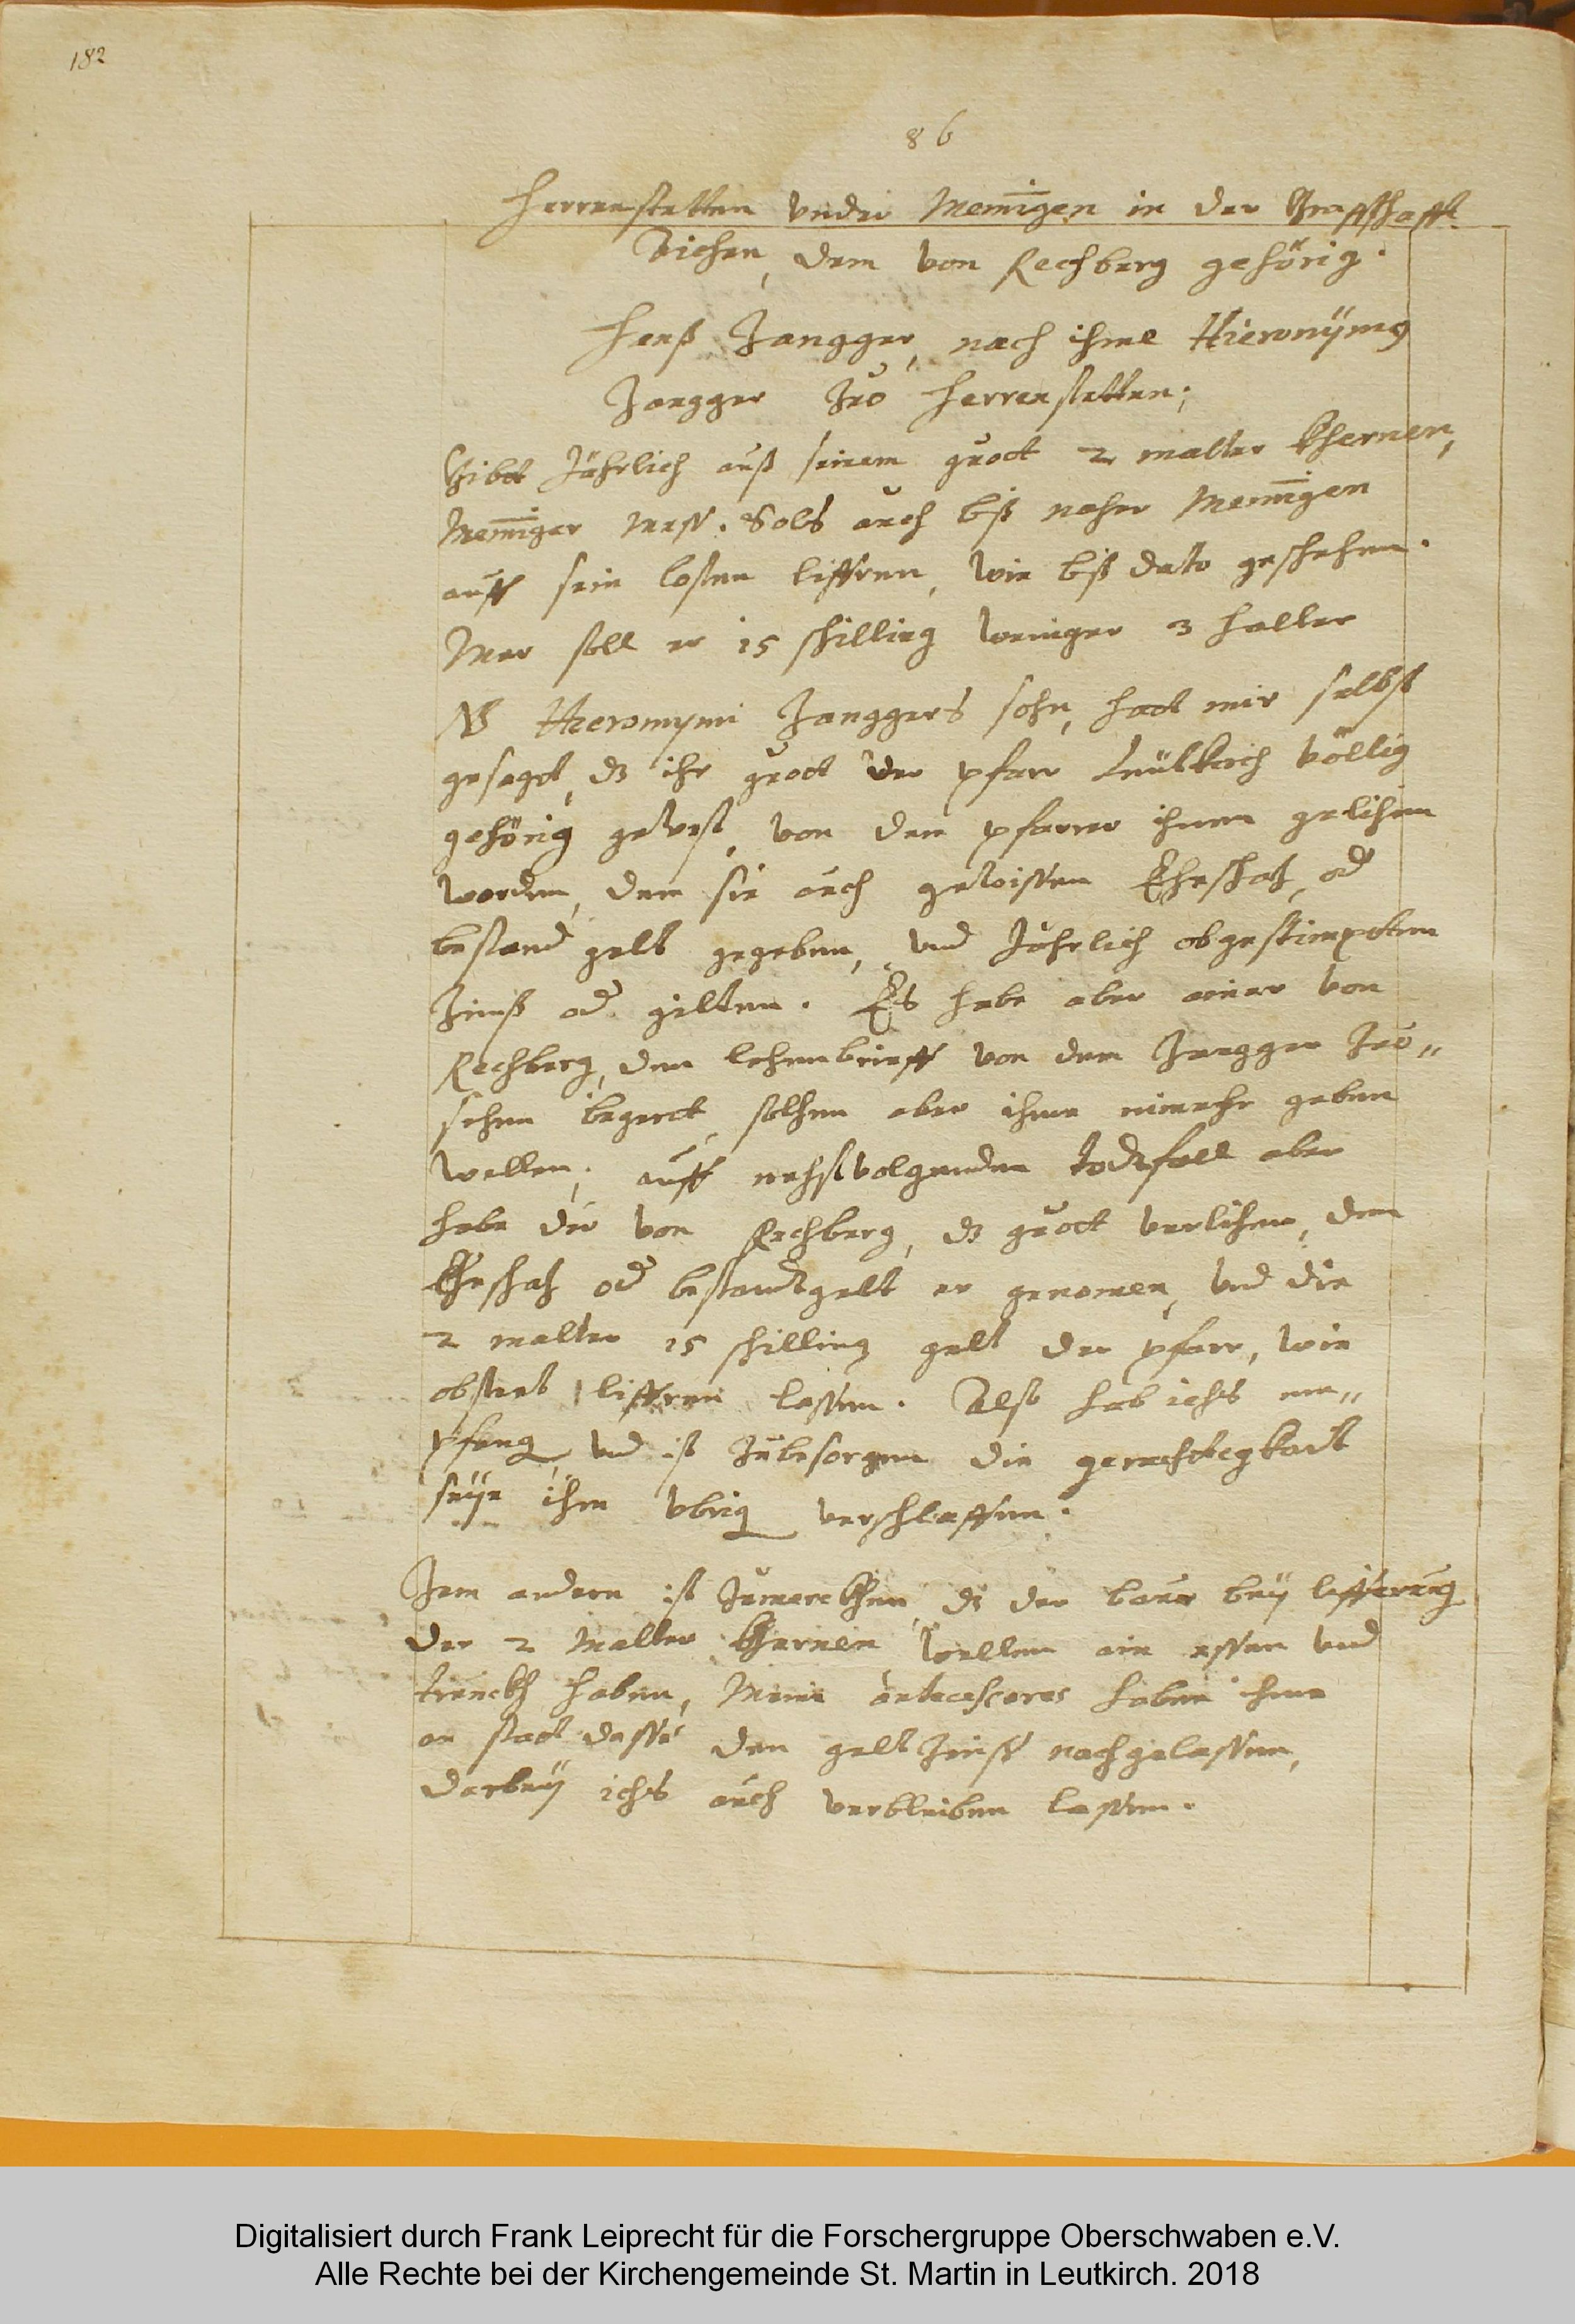 182
86
Herrenstetten under Memigen in der Graffschafft
Aichen, dem von Rechberg gehörig.
Hanß Zangger, nach ihme Hieronÿmus
Zangger zuo Herrenstetten;
Gibt Jährlich auß seinem guott 2 malter Khernen,
Memiger mess. Sols auch biß naher Memigen
auff sein costen liffren, wie biß dato geschehen.
Mer soll er 15 schilling weniger 3 haller
NB Hieronymi Zanggers sohn, hatt mir selbst
gesagt, dz ihr guott der pfarr Leütkirch völlig
gehörig gewest, von den pfarrer ihnen gelihen
worden, dem sie auch gewissen Ehrschatz, od
bestand gelt gegeben, und Jährlich obgestimpten
Zinß od gilten. Es habe aber einer von
Rechberg, den lehenbrieff von dem Zangger zuo„
sehen begert, solchen aber ihme nimehr geben
wellen; auff nechstvolgenden todtfall aber
habe der von Rechberg, dz guott verlihen, den
Ehrschatz od bestandtgelt er genomen, und die
2 malter 15 schilling gelt der pfarr, wie
obsteet liffren lassen. Also hab ichs em„
pfang und ist zübesorgen die gerechtegkait
seÿe ihm übrig verschlaffen.
Zem andern ist zümerckhen dz der baur beÿ lifferung
der 2 Malter Khernen wellen ein essen und
trunckh haben, Meine antecessores haben ihme
an statt desse den gelt Zinß nachgelassen,
darbeÿ ichs auch verbleiben lassen.
Digitalisiert durch Frank Leiprecht für die Forschergruppe Oberschwaben e.V.
Alle Rechte bei der Kirchengemeinde St. Martin in Leutkirch. 2018